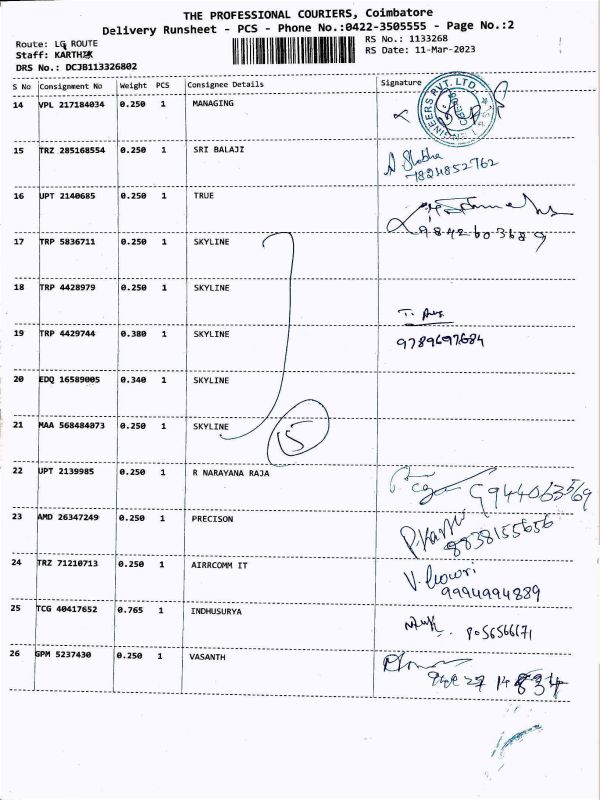 THE PROFESSIONAL COURIERS, Coimbatore
Delivery Runsheet - PCS - Phone No.:0422-3505555 - Page No.:2
Route: LG ROUTE
RS No.: 1133268
Staff: KARTHIK
RS Date: 11-Mar-2023
DRS No.: DCJB113326802
S No Consignment No Weight PCS Consignee Details Signature
14 VPL 217184034 0.250 1 MANAGING
15 TRZ 285168554 0.250 1 SRI BALAJI
A Shobha
7824852762
16 UPT 2140685 0.250 1 TRUE
9842603689
17 TRP 5836711 0.250 1 SKYLINE
18 TRP 4428979 0.250 1 SKYLINE
19 TRP 4429744 0.380 1 SKYLINE
9789697684
20 EDQ 16589005 0.340 1 SKYLINE
21 MAA 568484073 0.250 1 SKYLINE
5
22 UPT 2139985 0.250 1 R NARAYANA RAJA
9944063569
23 AMD 26347249 0.250 1 PRECISON
8838155656
24 TRZ 71210713 0.250 1 AIRRCOMM IT
V. Gowri
9994994889
25 TCG 40417652 0.765 1 INDHUSURYA
8056566171
26 GPM 5237430 0.250 1 VASANTH